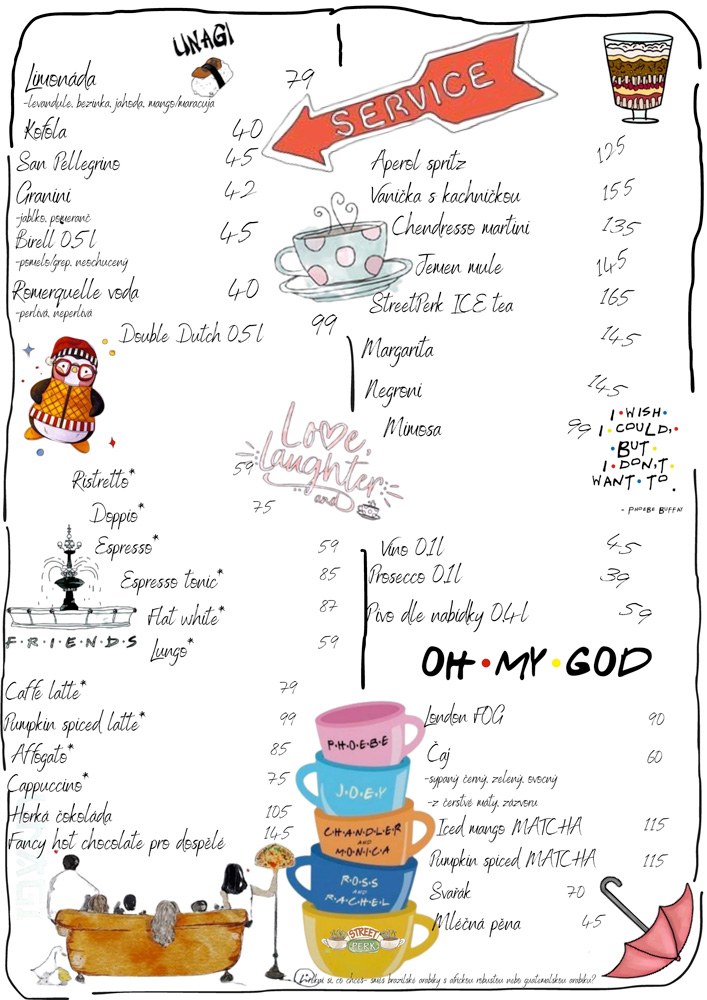 UNAGI
Limonáda 79
-levandule, bezinka, jahoda, mango/maracuja
Kofola 40
San Pellegrino 45
Granini 42
-jablko, pomeranč
Birell 0.5 l 45
-pomelo/grep, neochucený
Romerquelle voda 40
-perlivá, neperlivá
Double Dutch 0.5 l 99
SERVICE
Aperol spritz 125
Vanička s kachničkou 155
Chendresso martini 135
Jemen mule 145
StreetPerk ICE tea 165
Margarita 145
Negroni 145
Mimosa 99
I•WISH•
I•COULD,•
•BUT•
I•DON,T•
WANT•TO.
- PHOEBE BUFFAY
Love,
Laughter
and
Ristretto* 59
Doppio* 75
Espresso* 59
Espresso tonic* 85
Flat white* 87
Lungo* 59
F•R•I•E•N•D•S
Víno 0.1l 45
Prosecco 0.1l 39
Pivo dle nabídky 0.4 l 59
OH•MY•GOD
Caffé latte* 79
Pumpkin spiced latte* 99
Affogato* 85
Cappuccino* 75
Horká čokoláda 105
Fancy hot chocolate pro dospělé 145
P•H•O•E•B•E
J•O•E•Y
C•H•A•N•D•L•E•R
AND
M•O•N•I•C•A
R•O•S•S
AND
R•A•C•H•E•L
STREET
PERK
London FOG 90
Čaj 60
-sypaný černý, zelený, ovocný
-z čerstvé máty, zázvoru
Iced mango MATCHA 115
Pumpkin spiced MATCHA 115
Svařák 70
Mléčná pěna 45
si, co chceš- směs brazilské arabiky s africkou robustou nebo guatemalskou arabiku?